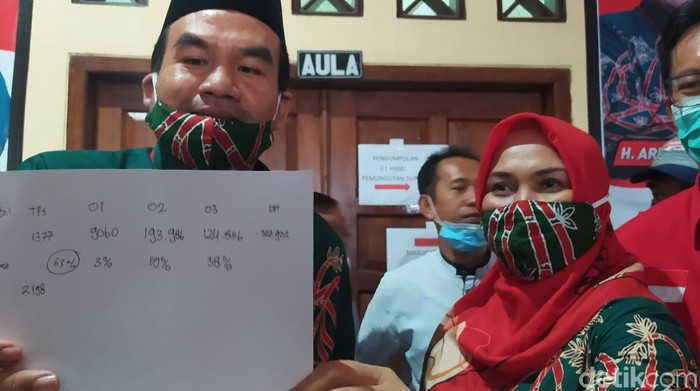 AULA
PENGUMPULAN
C1 HASIL
PEMUNGUTAN SUARA
H. AR
TPS 01 02 03
1377 9060 193.986 124.886
63% 3% 59% 38%
2198
detikcom